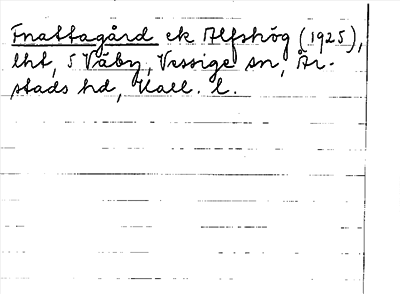 Fnattagård ek Alfshög (1925),
lht, s Väby, Vessige sn, År-
stads hd, Hall. l.